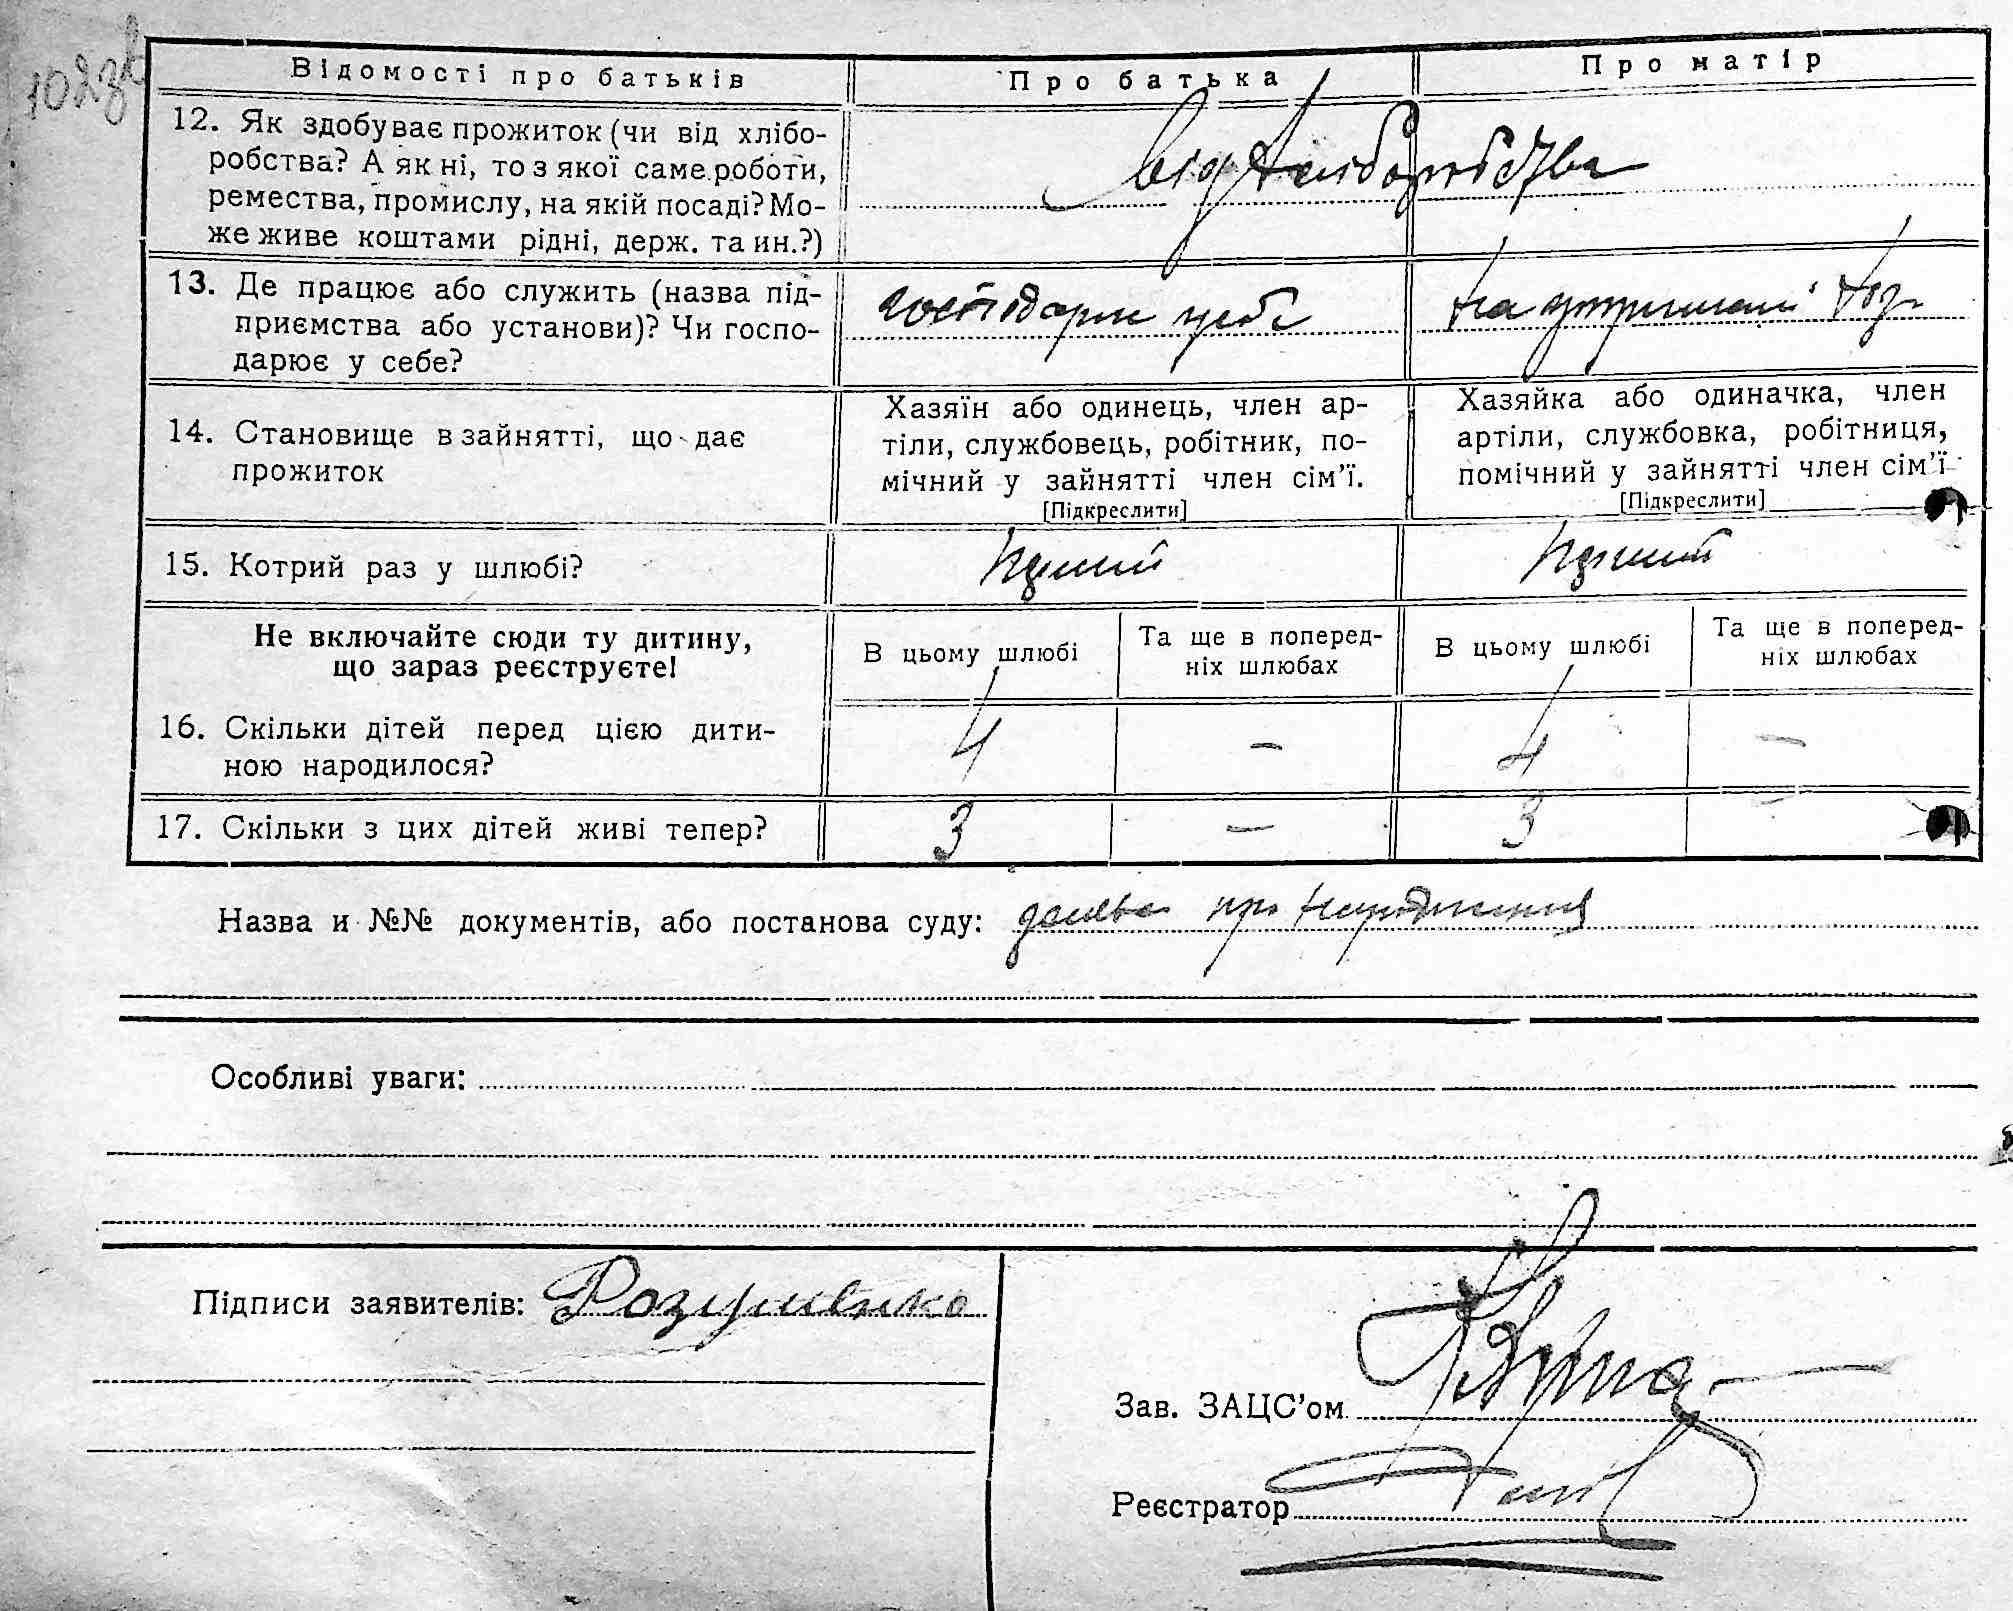 102зв
Відомості про батьків
Про батька
Про матір
12. Як здобуває прожиток (чи від хлібо-
робства? А як ні, то з якої саме роботи,
ремества, промислу, на якій посаді? Мо-
же живе коштами рідні, держ. та ин.?)
від хліборобства
13. Де працює або служить (назва під-
приємства або установи)? Чи госпо-
дарює у себе?
господарює у себе
на утриманні
14. Становище в зайнятті, що дає
прожиток
Хазяїн або одинець, член ар-
тіли, службовець, робітник, по-
мічний у зайнятті член сім’ї.
[Підкреслити]
Хазяйка або одиначка, член
артіли, службовка, робітниця,
помічний у зайнятті член сім’ї
[Підкреслити]
15. Котрий раз у шлюбі?
Перший
Перший
Не включайте сюди ту дитину,
що зараз реєструєте!
В цьому шлюбі
Та ще в поперед-
ніх шлюбах
В цьому шлюбі
Та ще в поперед-
ніх шлюбах
16. Скільки дітей перед цією дити-
ною народилося?
4 – 4 –
17. Скільки з цих дітей живі тепер?
3 – 3 –
Назва и №№ документів, або постанова суду: про народження
Особливі уваги:
Підписи заявителів: Розумєнко
Зав. ЗАЦС’ом
Реєстратор